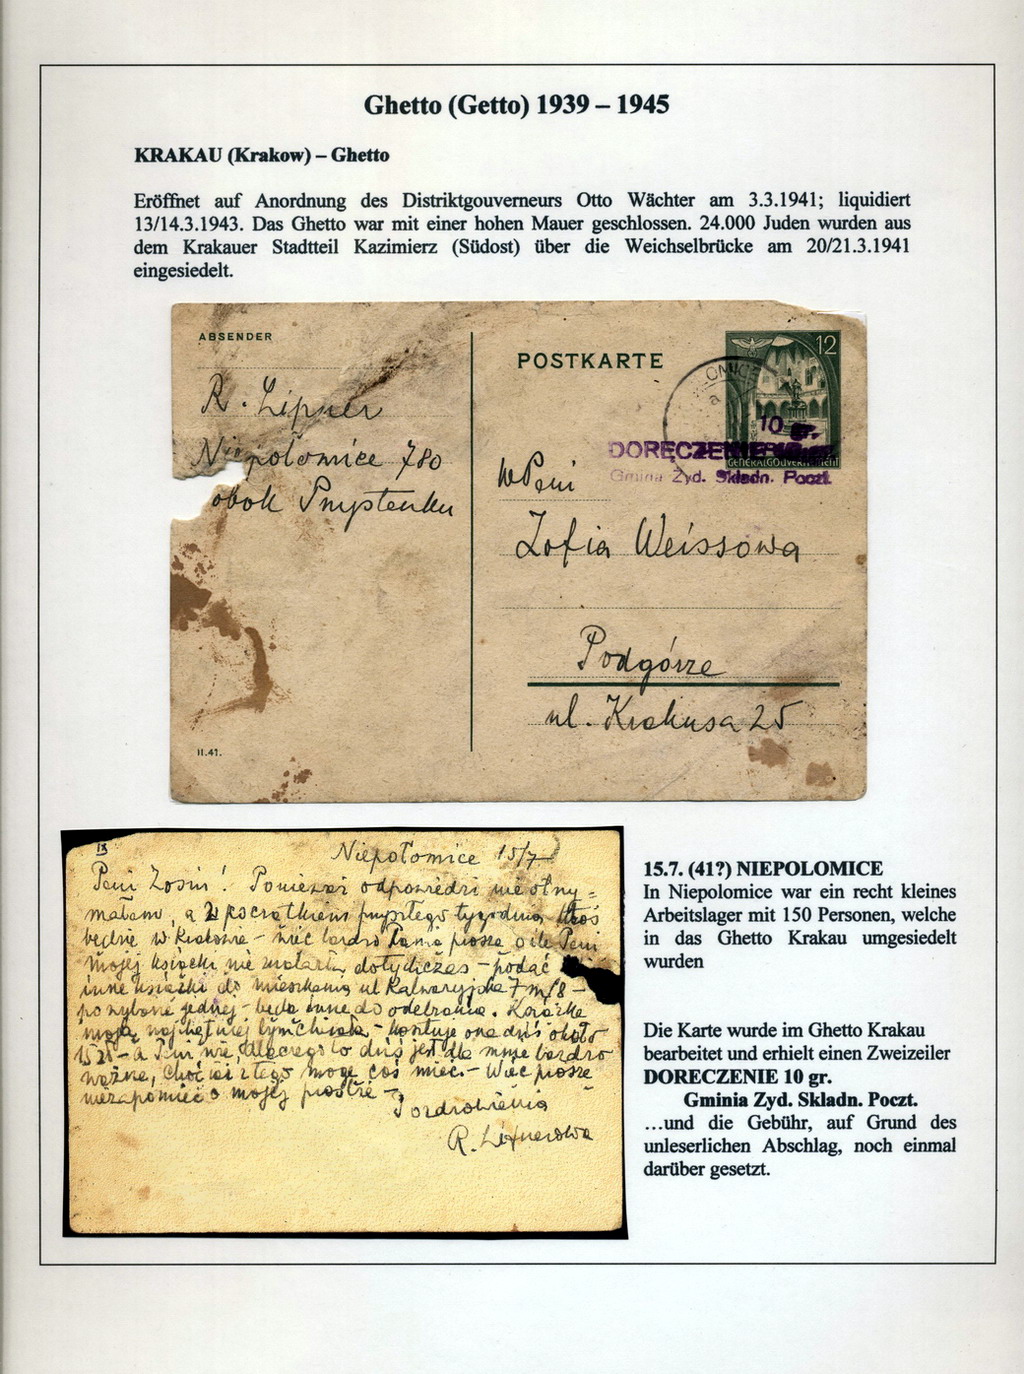 Ghetto (Getto) 1939 – 1945
KRAKAU (Krakow) – Ghetto
Eröffnet auf Anordnung des Distriktgouverneurs Otto Wächter am 3.3.1941; liquidiert
13/14.3.1943. Das Ghetto war mit einer hohen Mauer geschlossen. 24.000 Juden wurden aus
dem Krakauer Stadtteil Kazimierz (Südost) über die Weichselbrücke am 20/21.3.1941
eingesiedelt.
ABSENDER
R. Lipner
Niepołomice 780
obok
II.41.
POSTKARTE
12
GENERALGOUVERNEMENT
10 gr.
DORĘCZENIE
Gmina Żyd. Składn. Poczt.
WPani
Zofia Weissowa
Podgórze
ul. Krakusa 25
Niepołomice 15/7
Pani Zosiu! Ponieważ odpowiedzi nie otrzy=
małam, a z początkiem przyszłego tygodnia ktoś
będzie w Krakowie – więc bardzo Panią proszę o ile Pani
mojej książki nie znalazła dotychczas – podać
inne książki do mieszkania ul Kalwaryjska 7 m/8 –
po jednej – będą inne do odebrania. Książkę
moją najchętniej bym chciała – kosztuje ona dziś około
dlaczego to dziś jest dla mnie bardzo
ważne, chociaż z tego mogę coś mieć. – Więc proszę
niezapomieć o mojej prośbie –
Pozdrowienia
R. Lipnerowa
15.7. (41?) NIEPOLOMICE
In Niepolomice war ein recht kleines
Arbeitslager mit 150 Personen, welche
in das Ghetto Krakau umgesiedelt
wurden
Die Karte wurde im Ghetto Krakau
bearbeitet und erhielt einen Zweizeiler
DORECZENIE 10 gr.
Gminia Zyd. Skladn. Poczt.
…und die Gebühr, auf Grund des
unleserlichen Abschlag, noch einmal
darüber gesetzt.